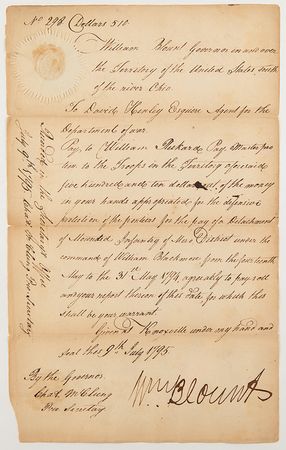 No 298 Dollars 510.
William Blount Governor in and over
the Territory of the United States, south
of the river Ohio.
To David Henley Esquire Agent for the
Department of war.
Pay to William Rickard Pay Master pro tem
to the Troops in the Territory aforesaid
five hundred and ten dollars, of the money
in your hands appropriated for the defensive
protection of the frontiers for the pay of a Detachment
of Mounted Infantry of Mero District under the
command of William Blackmore from the fourteenth
May to the 31st May 1794, agreeably to pay roll
and your report thereon of this date, for which this
shall be your warrant.
Given at Knoxville under my hand and
seal this 9th July 1795.
By the Governor
Chas. McClung
Pro. Secretary
Wm Blount
Entered in the Secretary's Office
July 9th 1795 Chas. McClung Pro. Secretary